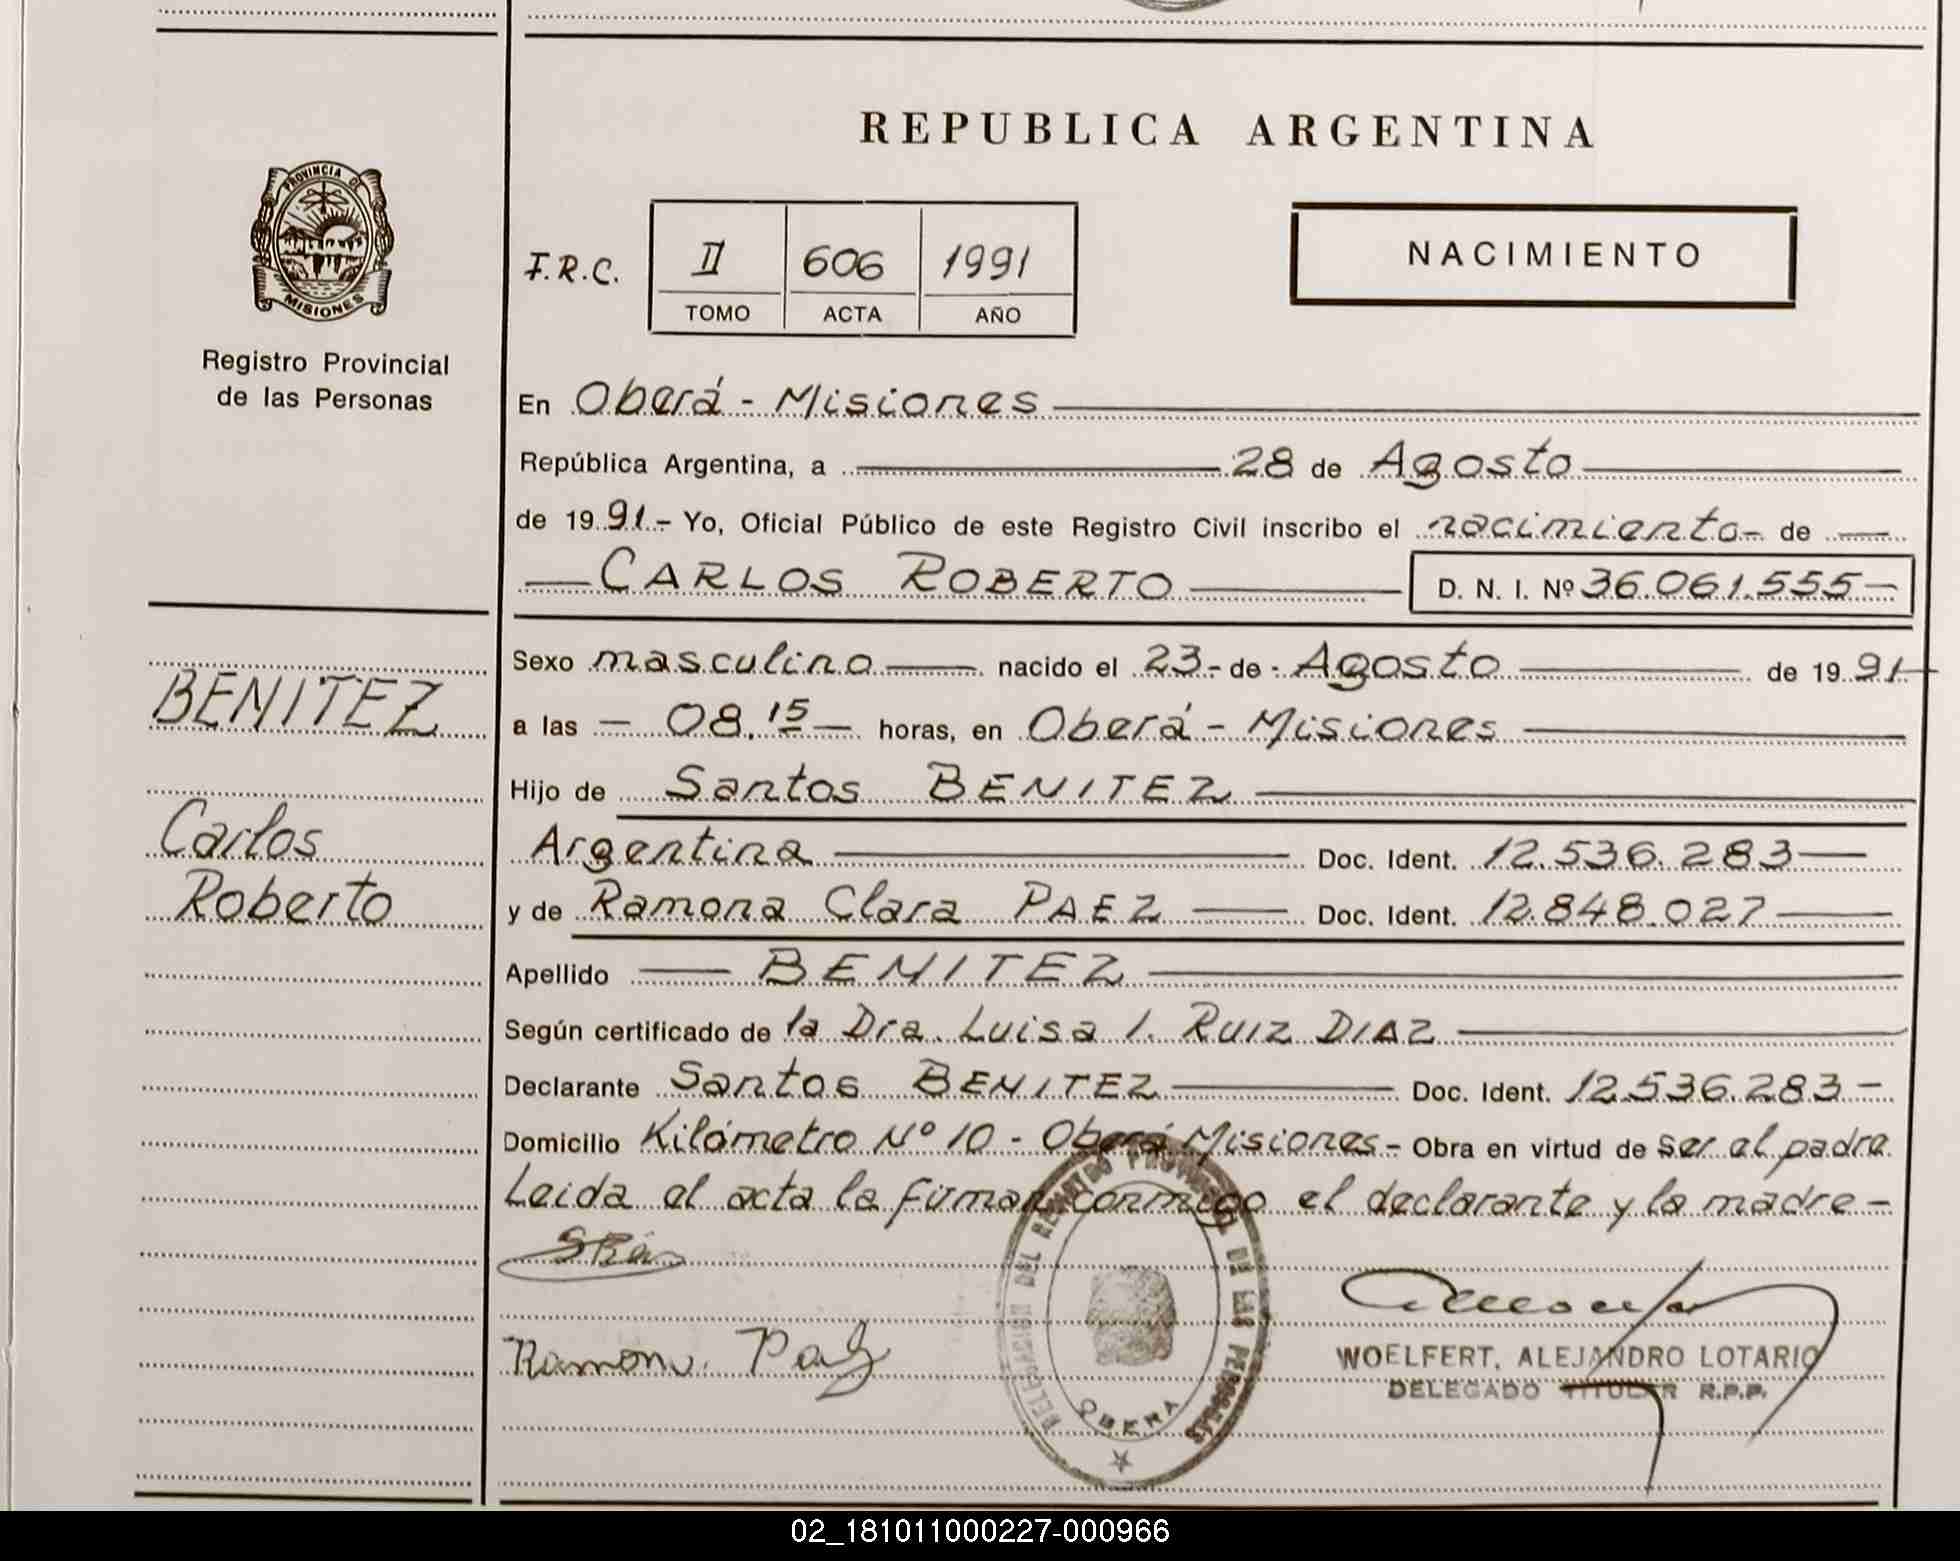 REPUBLICA ARGENTINA
PROVINCIA DE
MISIONES
Registro Provincial
de las Personas
F.R.C. II 606 1991
TOMO ACTA AÑO
NACIMIENTO
En Oberá - Misiones
República Argentina, a 28 de Agosto
de 1991.- Yo, Oficial Público de este Registro Civil inscribo el nacimiento- de
CARLOS ROBERTO D. N. I. Nº 36.061.555-
BENITEZ
Carlos
Roberto
Sexo masculino nacido el 23- de - Agosto de 1991-
a las - 08.15 - horas, en Oberá - Misiones
Hijo de Santos BENITEZ
Argentina Doc. Ident. 12.536.283
y de Ramona Clara PAEZ Doc. Ident. 12.848.027
Apellido BENITEZ
Según certificado de la Dra. Luisa I. RUIZ DIAZ
Declarante Santos BENITEZ Doc. Ident. 12.536.283-
Domicilio Kilómetro Nº 10 - Oberá Misiones- Obra en virtud de ser el padre
Leida el acta la firman conmigo el declarante y la madre -
DELEGACION DEL REGISTRO PROVINCIAL DE LAS PERSONAS
OBERA
WOELFERT, ALEJANDRO LOTARIO
DELEGADO TITULAR R.P.P.
02_181011000227-000966